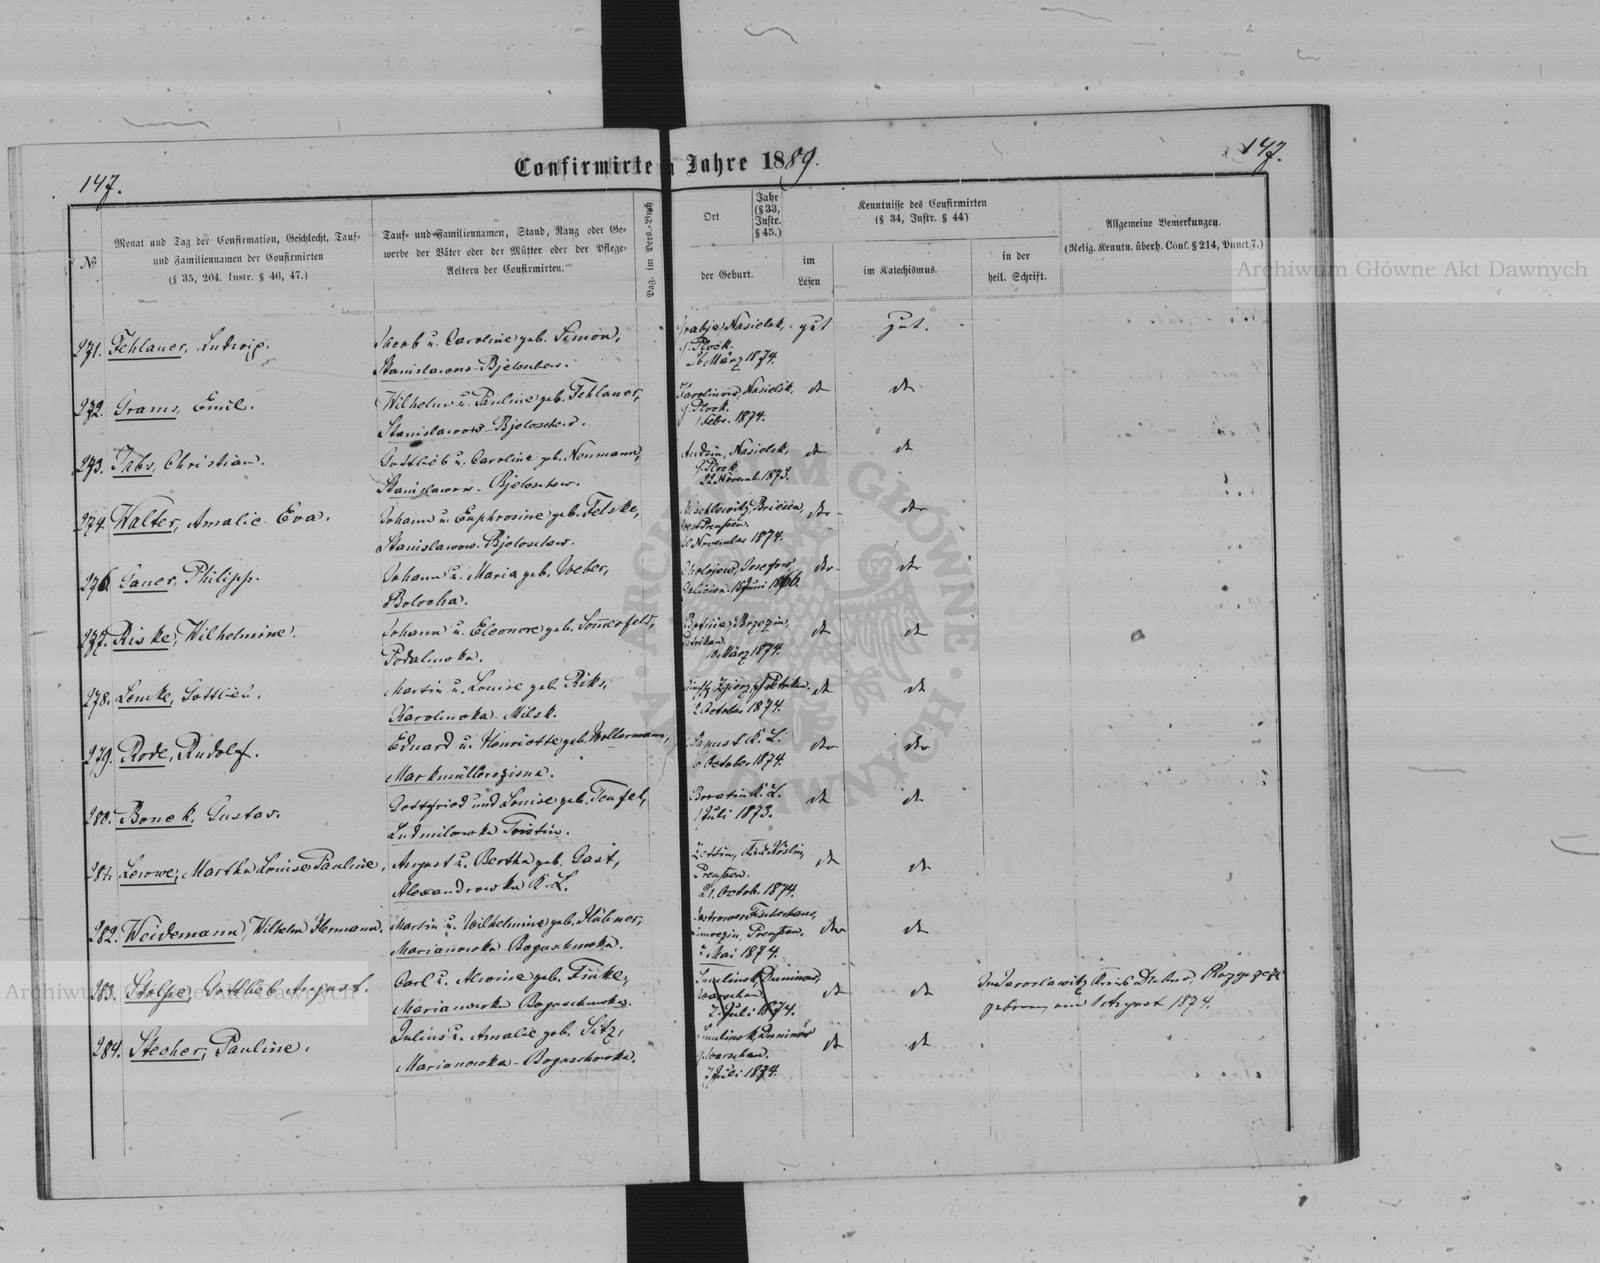 147.
Confirmirte Jahre 1889.
147.
№
Monat und Tag der Confirmation, Geschlecht, Tauf-
und Familiennamen der Confirmirten
(§ 35, 204. Instr. § 46, 47.)
Tauf- und Familiennamen, Stand, Rang oder Ge-
werbe der Väter oder der Mütter oder der Pflege-
Aeltern der Confirmirten.
Pag. im Pers.-Buch
Ort
der Geburt.
Jahr
(§ 33,
Instr.
§ 45.)
Kenntnisse des Confirmirten
(§ 34, Instr. § 44)
im
Lesen
im Katechismus.
in der
heil. Schrift.
Allgemeine Bemerkungen.
(Relig. Kenntn. überh. Conf. § 214, Punct 7.)
271. Fehlauer, Ludwig.
Jacob u. Caroline geb. Simon,
Stanislawow-Bjeloschow.
Nasielsk,
G. Plock.
März 1874.
gut
gut.
272. Grams, Emil.
Wilhelm u. Pauline geb. Fehlauer,
Stanislawow-Bjeloschow.
Karolinow, Nasielsk,
G. Plock.
1 Febr. 1874.
dt
dt
273. Jabs, Christian.
Gottlieb u. Caroline geb. Neumann,
Stanislawow-Bjeloschow.
Nasielsk,
G. Plock
22 Novemb. 1873.
dt
dt
274. Walter, Amalie Eva.
Johann u. Euphrosine geb. Felske,
Stanislawow-Bjeloschow.
Briesen,
West Preußen.
November 1874.
dt
dt
276. Sauer, Philipp.
Johann u. Maria geb. Weber,
Bolocha.
Josefow,
Galicien. 18 Juni 1866.
dt
dt
277. Riske, Wilhelmine.
Johann u. Eleonore geb. Somerfeld,
Podalmoka.
Brzezin,
Petrikau.
10 März 1874.
dt
dt
278. Lemke, Gottlieb.
Martin u. Louise geb. Riks,
Karolinoka-Milsk.
Zgierz, G. Petrikau.
2 October 1874.
dt
dt
279. Rode, Rudolf.
Eduard u. Henriette geb. Wollermann,
K. L.
October 1874.
dt
dt
280. Bonek, Gustav.
Gottfried und Louise geb. Teufel,
Ludmilowka
Boratin K. L.
1 Juli 1873.
dt
dt
281. Lewwe, Martha Louise Pauline,
August u. Bertha geb. Gast,
Alexandrowka K. L.
Zettin, Köslin,
Preußen.
21. Octob. 1874.
dt
dt
282. Weidemann, Wilhelm Hermann.
Martin u. Wilhelmine geb. Hübner,
Marianowka Boguschowka.
Fischerhaus,
Preußen.
Mai 1874.
dt
dt
283. Stolpe, Gottlieb August.
Carl u. Alwine geb. Finke,
Marianowka Boguschowka.
Duninow,
Warschau
7 Juli 1874.
dt
dt
In Jaroslawitz Kreis Dubno,
geboren am 1 August 1874.
284. Stecher, Pauline.
Julius u. Amalie geb. Sitz,
Marianowka-Boguschowka.
Duninow
G. Warschau.
7 Juli 1874.
dt
dt
Archiwum Główne Akt Dawnych
Archiwum Główne Akt Dawnych
ARCHIWUM GŁÓWNE AKT DAWNYCH